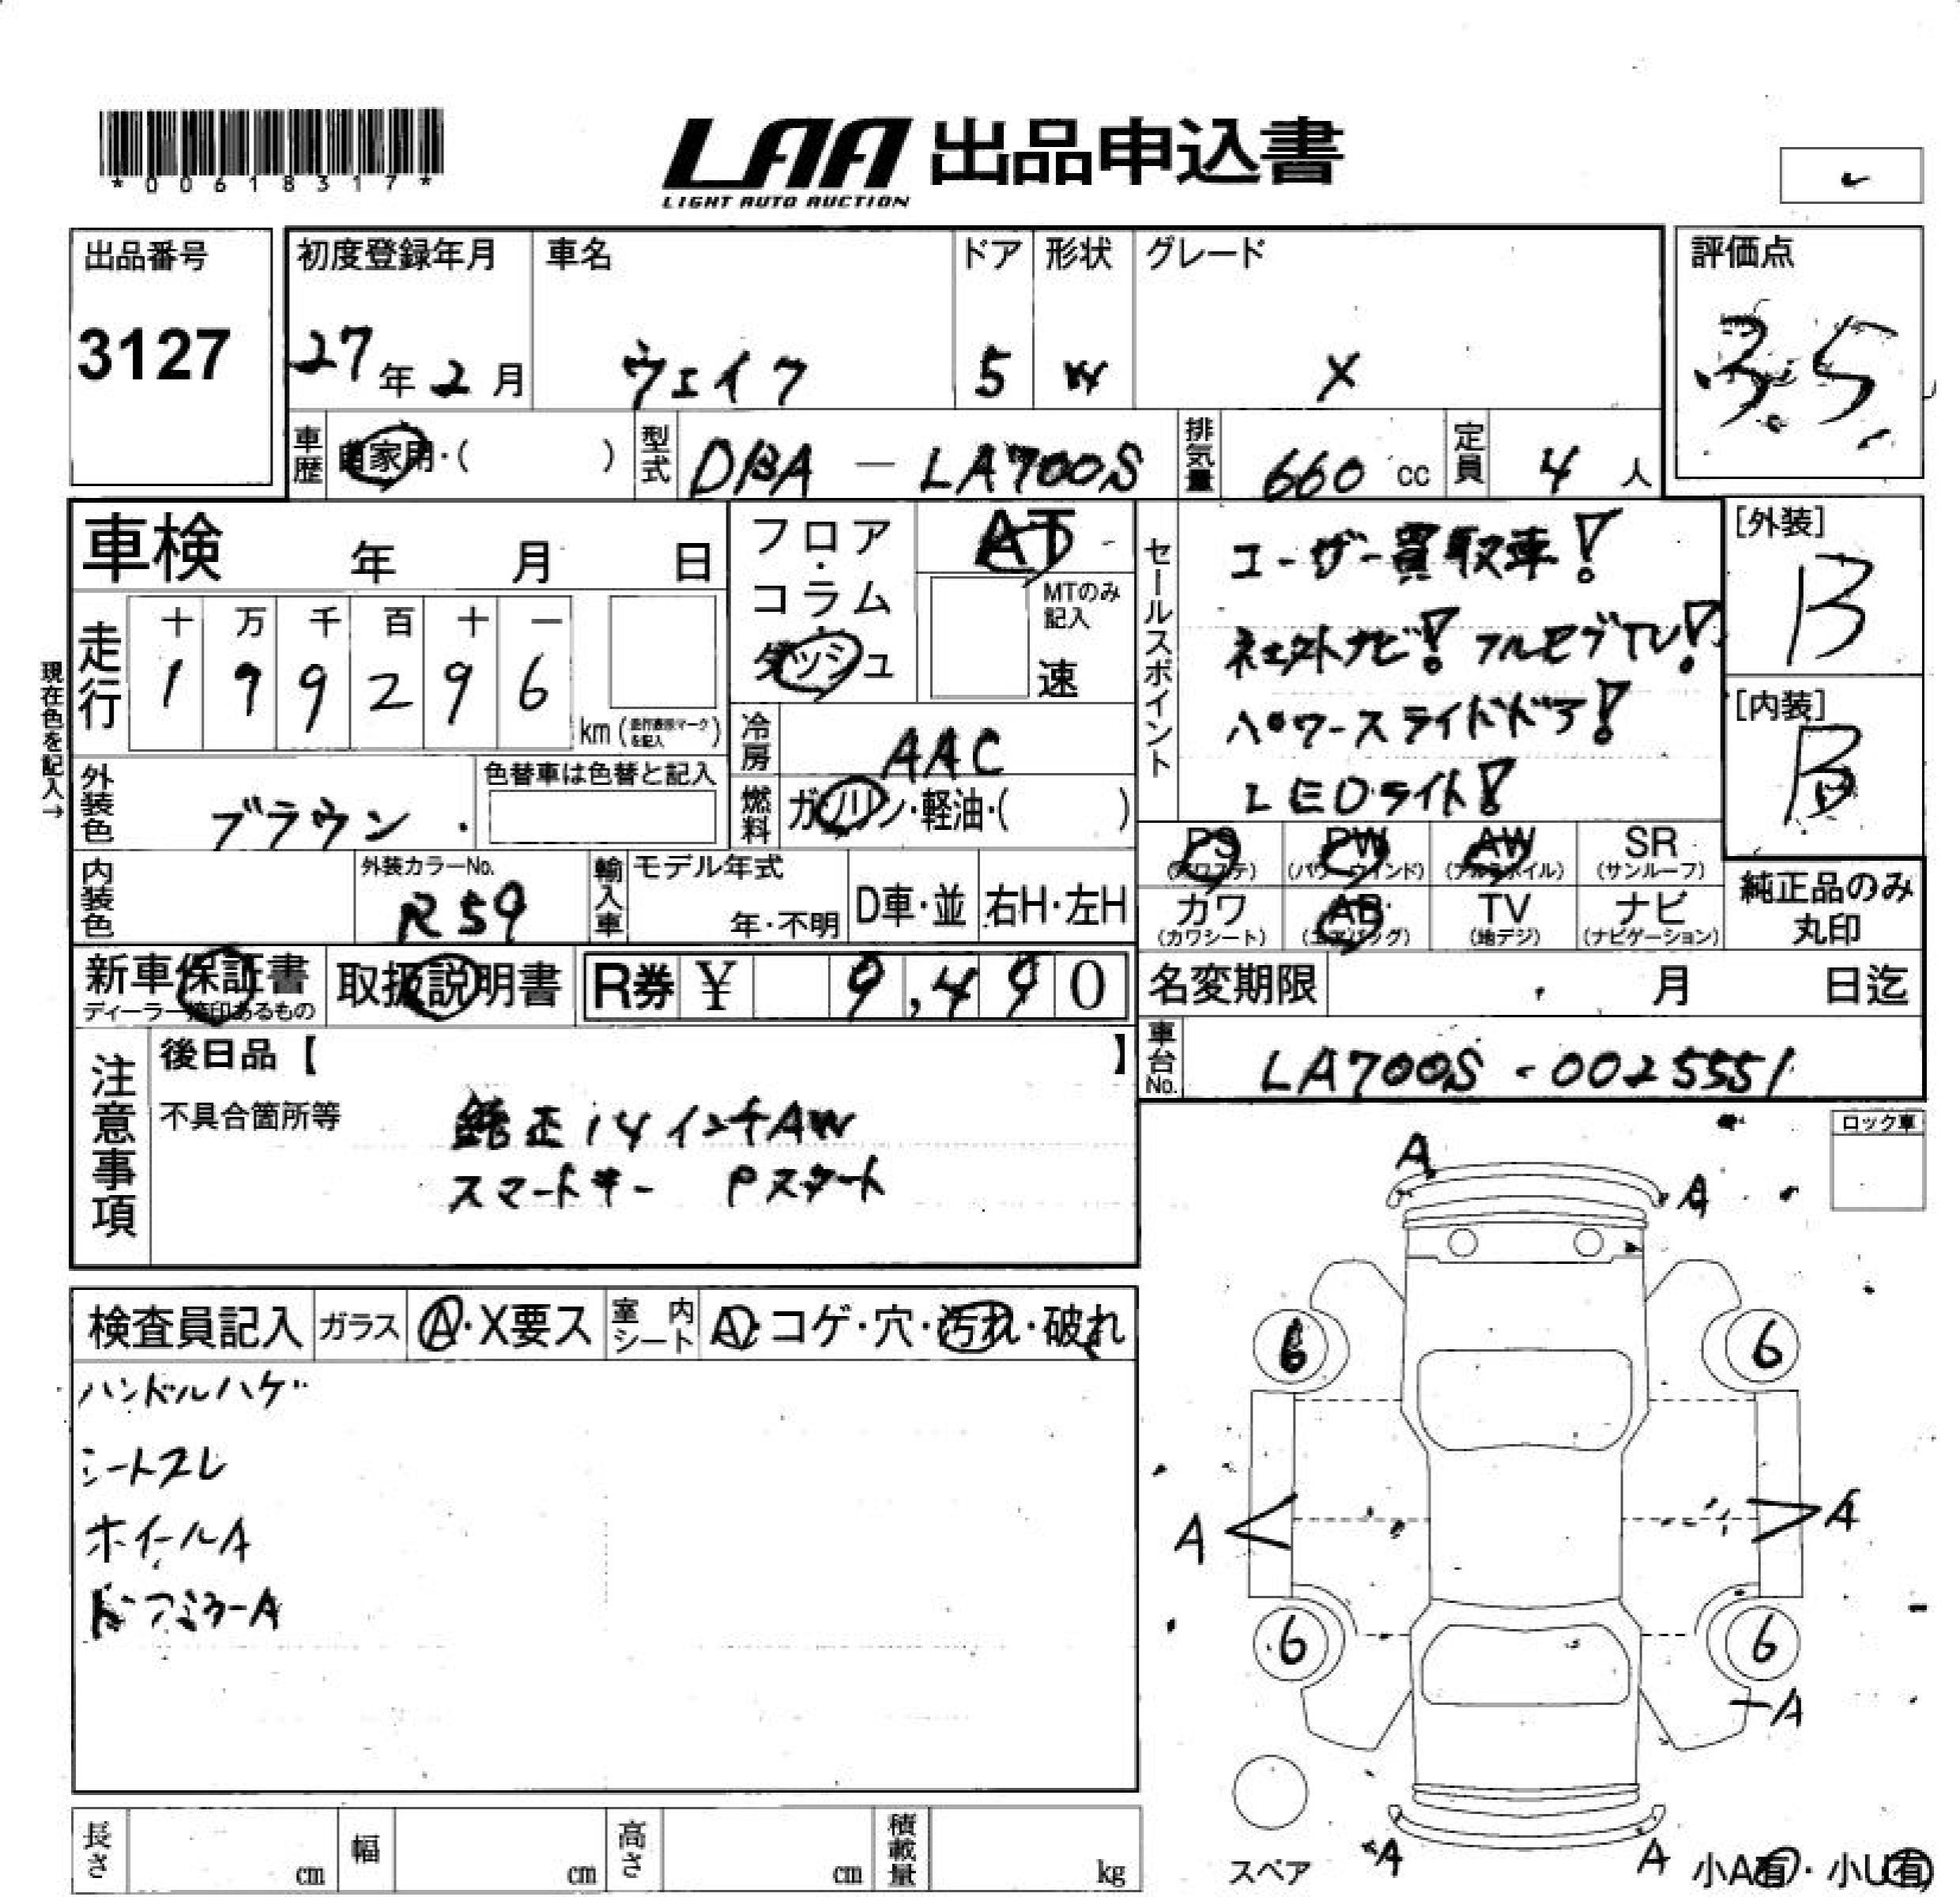 *00618317*
LAA 出品申込書
LIGHT AUTO AUCTION
出品番号
3127
初度登録年月
27年2月
車名
ウェイク
ドア
5
形状
W
グレード
X
評価点
3.5
車歴
自家用・( )
型式
DBA - LA700S
排気量
660 cc
定員
4 人
車検 年 月 日
現在色を記入→
走行
十 万 千 百 十 一
1 9 9 2 9 6
km (走行表示マークを記入)
外装色
ブラウン
色替車は色替と記入
内装色
外装カラーNo.
R59
フロア・コラム・ダッシュ
AT
MTのみ記入
速
冷房
AAC
燃料
ガソリン・軽油・( )
輸入車
モデル年式
年・不明
D車・並
右H・左H
セールスポイント
ユーザー買取車!
社外ナビ!フルセグTV!
パワースライドドア!
LEDライト!
[外装]
B
[内装]
B
PS
(パワステ)
PW
(パワーウインド)
AW
(アルミホイル)
SR
(サンルーフ)
カワ
(カワシート)
AB
(エアバッグ)
TV
(地デジ)
ナビ
(ナビゲーション)
純正品のみ
丸印
新車保証書
ディーラー捺印あるもの
取扱説明書
R券 ¥ 9,490
名変期限 月 日迄
車台No.
LA700S-0025551
注意事項
後日品【 】
不具合箇所等
純正14インチAW
スマートキー Pスタート
検査員記入
ガラス
A・X要ス
室内シート
A・コゲ・穴・汚れ・破れ
ハンドルハゲ
シートスレ
ホイールA
ドアミラーA
ロック車
A
A
6
6
A
A
6
6
A
スペア
A
A
小A有・小U有
長さ cm
幅 cm
高さ cm
積載量 kg